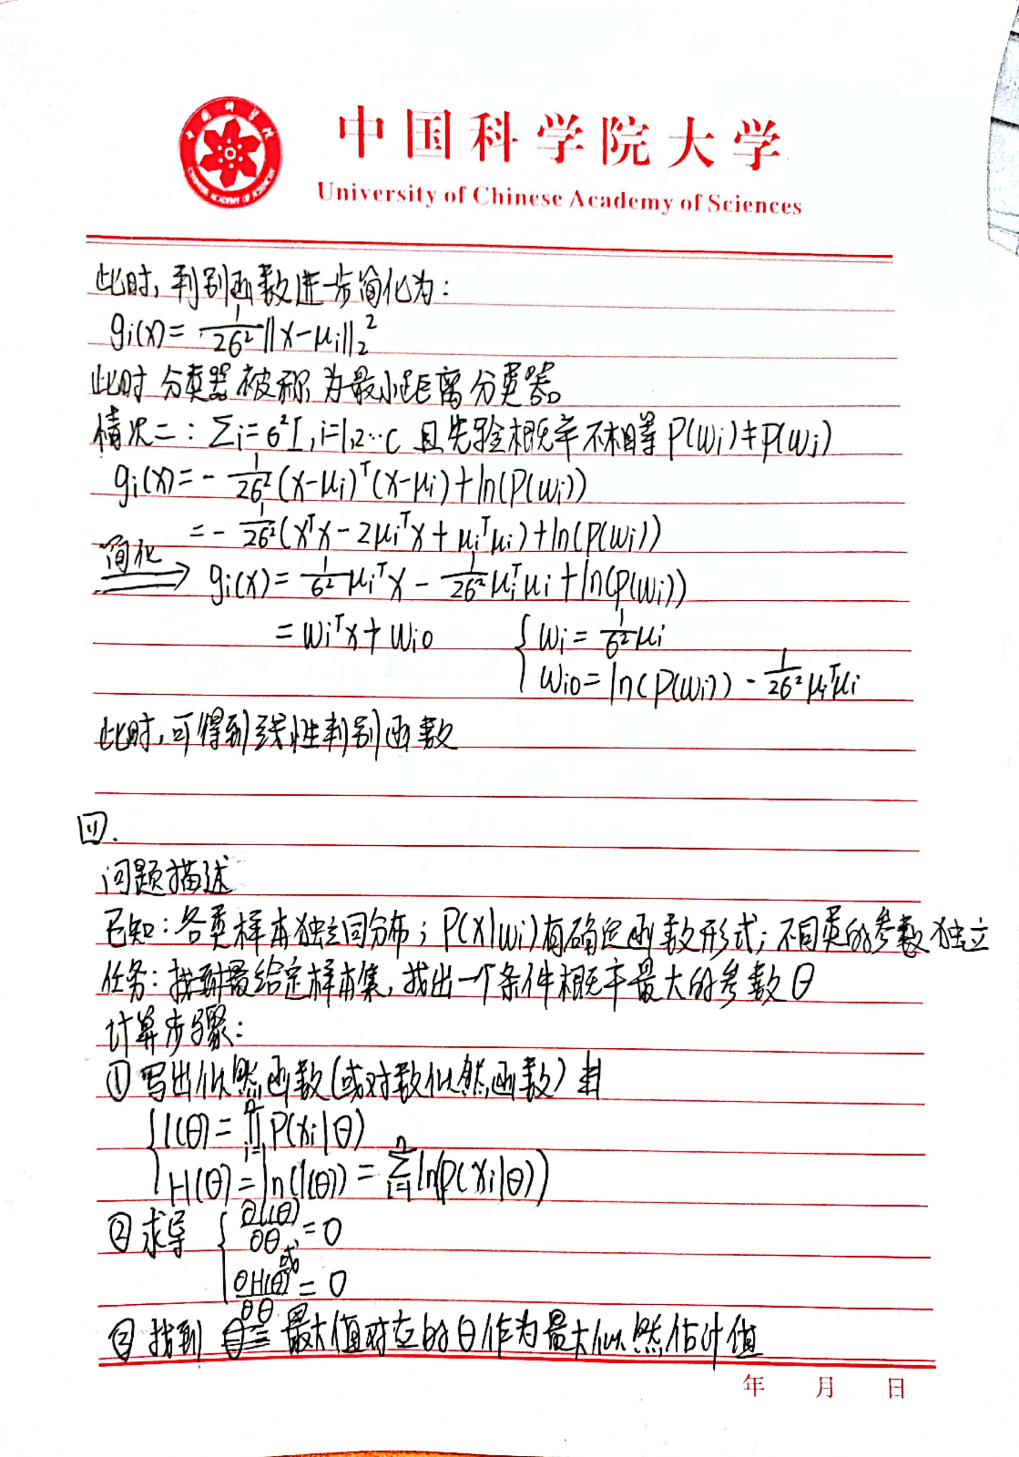 中国科学院大学
University of Chinese Academy of Sciences
此时，判别函数进一步简化为：
gi(x) = 1/2σ² ||x-μi||₂²
此时分类器被称为最小距离分类器。
情况二：Σi=σ²I, i=1,2…c 且先验概率不相等 P(wi)≠P(wj)
gi(x) = - 1/2σ² (x-μi)ᵀ(x-μi) + ln(P(wi))
= - 1/2σ² (xᵀx - 2μiᵀx + μiᵀμi) + ln(P(wi))
简化 ⟹ gi(x) = 1/σ² μiᵀx - 1/2σ² μiᵀμi + ln(P(wi))
= wiᵀx + wi0 { wi = 1/σ² μi
wi0 = ln(P(wi)) - 1/2σ² μiᵀμi
此时，可得到线性判别函数
四.
问题描述
已知：各类样本独立同分布；P(x|wi)有确定函数形式；不同类的参数独立
任务：给定样本集，找出一个条件概率最大的参数θ
计算步骤：
① 写出似然函数(或对数似然函数)
{ l(θ) = ∏ⁿᵢ₌₁ P(xi|θ)
H(θ) = ln(l(θ)) = Σⁿᵢ₌₁ ln(P(xi|θ))
② 求导 { ∂l(θ)/∂θ = 0
或
∂H(θ)/∂θ = 0
③ 找到 最大值对应的θ作为最大似然估计值
年 月 日